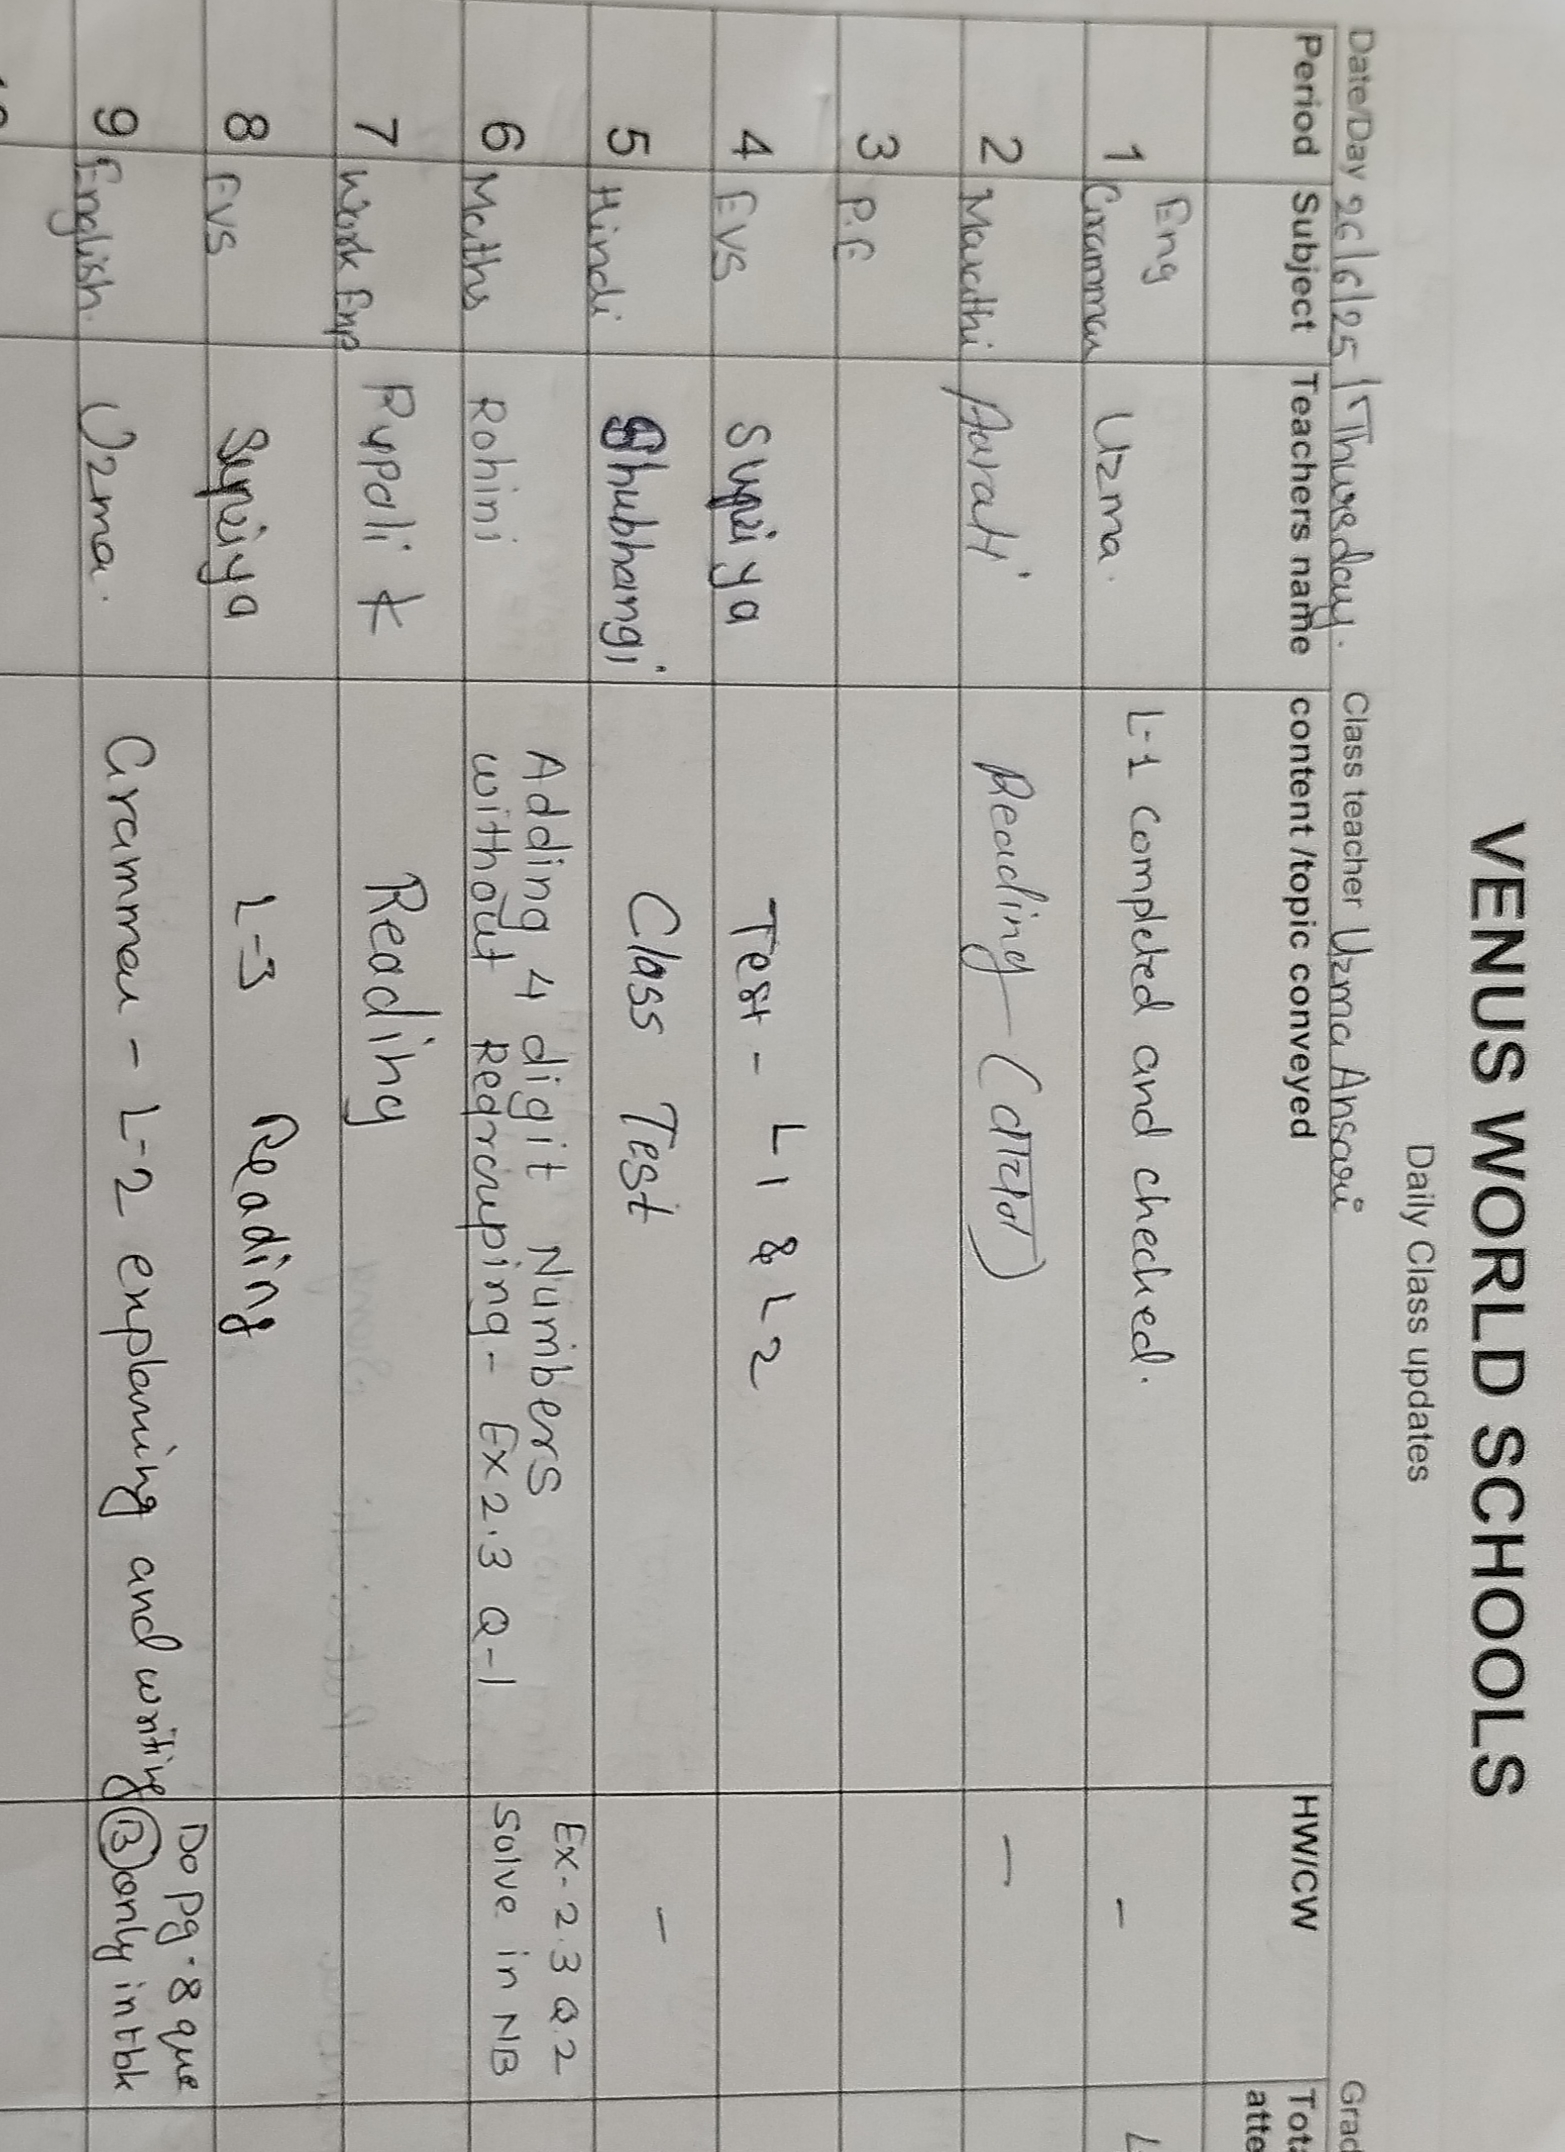 VENUS WORLD SCHOOLS
Daily Class updates
Date/Day 26/6/25 / Thursday. Class teacher Uzma Ansari Grad
Period Subject Teachers name content /topic conveyed HW/CW Tot
atte
1 Eng Grammar Uzma. L-1 completed and checked. - L
2 Marathi Aarati Reading - -
3 P.E
4 EVS Supriya Test - L1 & L2
5 Hindi Shubhangi Class Test -
6 Maths Rohini Adding 4 digit Numbers Ex-2.3 Q.2
without Regrouping - Ex 2.3 Q-1 Solve in NB
7 Work Exp Rupali k Reading
8 EVS Supriya L-3 Reading
9 English. Uzma. Grammar - L-2 explaning and writing Do pg-8 que
B only in tbk